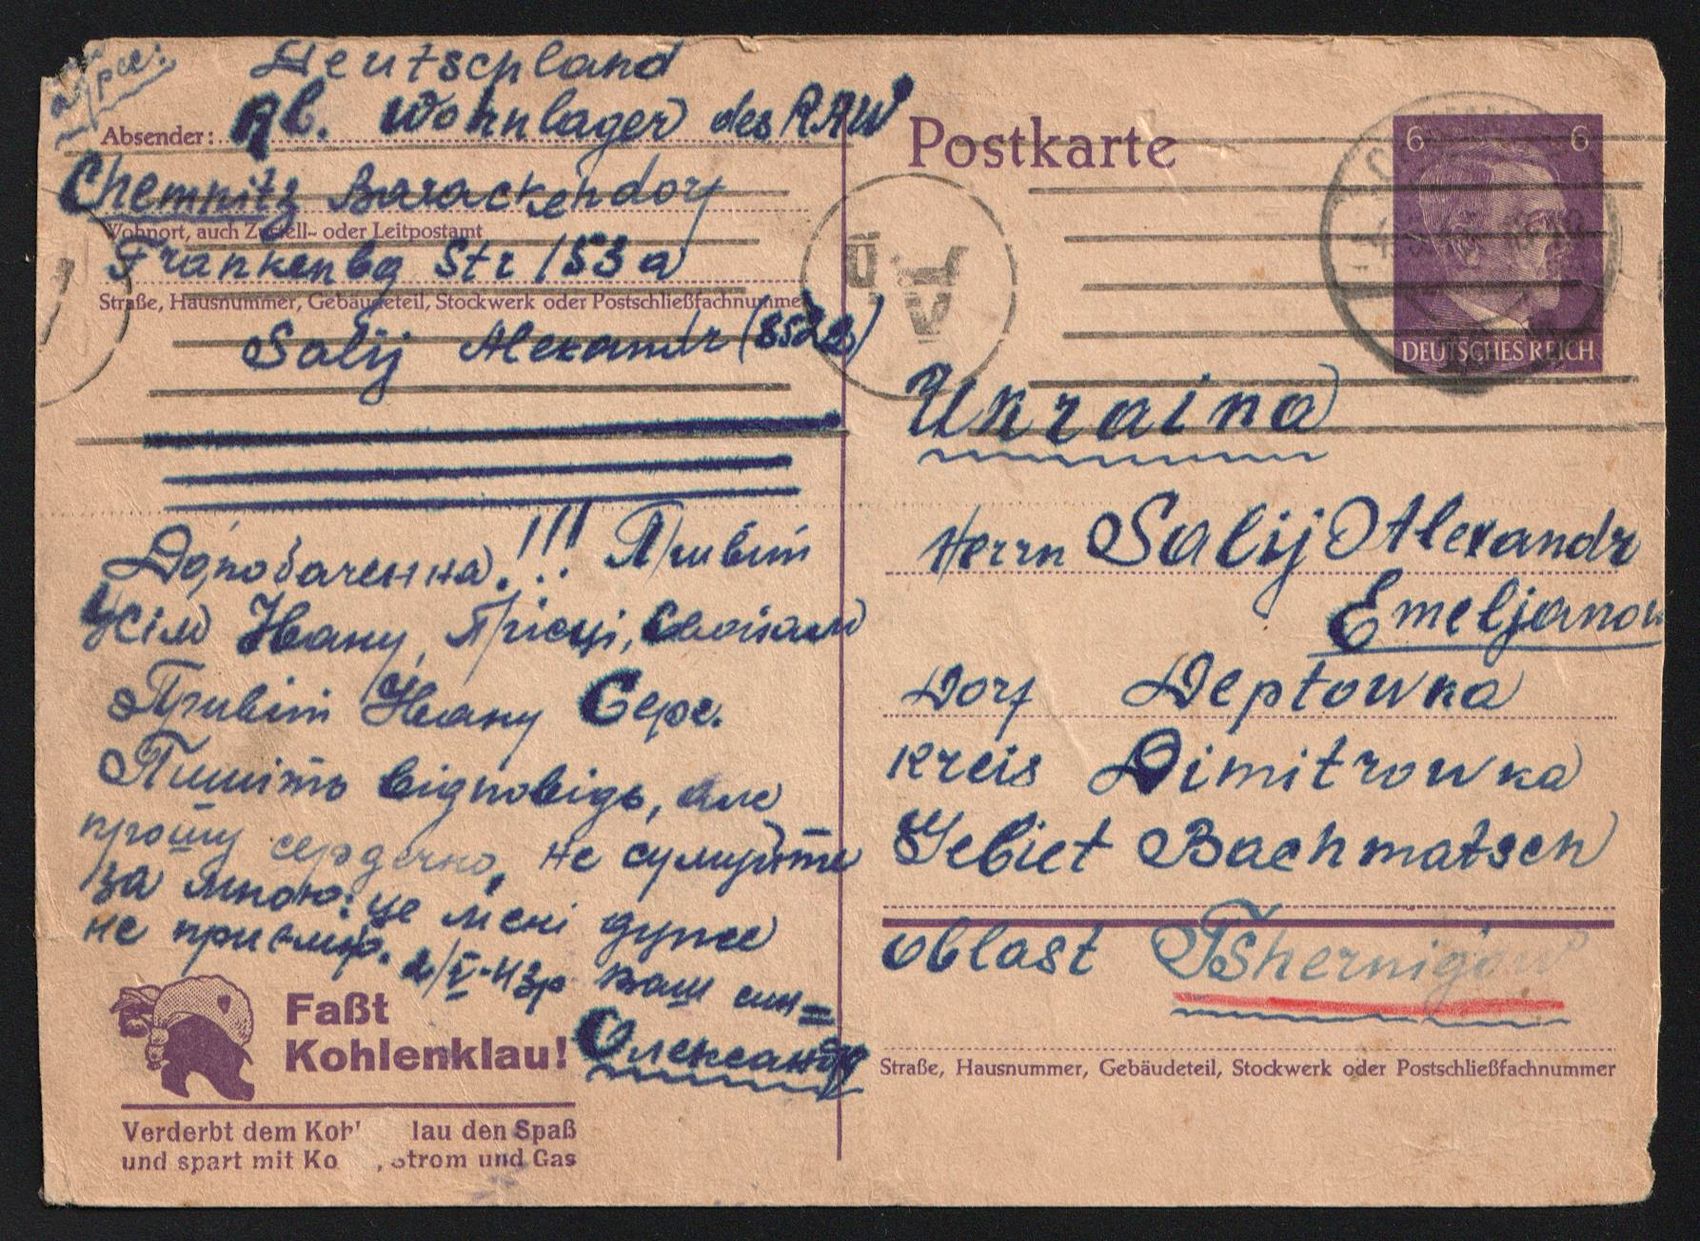 адрес:
Deutschland
Absender: Ab. Wohnlager des RAW
Chemnitz Barackendorf
Wohnort, auch Zustell- oder Leitpostamt
Frankenbg Str 153 a
Straße, Hausnummer, Gebäudeteil, Stockwerk oder Postschließfachnummer
Salij Alexandr (8522)
До побачення!!! Привіт
Усім Івану, Прісці, Своїхам
Привіт Івану Серг.
Пишіть відповідь, але
прошу сердечно, не сумуйте
за мною: це мені дуже
не приємно. 2/V-43р Ваш син=
Олександр
Faßt
Kohlenklau!
Verderbt dem Koh lau den Spaß
und spart mit Ko , Strom und Gas
Postkarte
6 6
DEUTSCHES REICH
Ukraina
Herrn Salij Alexandr
Emeljanow
Dorf Deptowka
Kreis Dimitrowka
Gebiet Bachmatsch
oblast Tshernigow
Straße, Hausnummer, Gebäudeteil, Stockwerk oder Postschließfachnummer